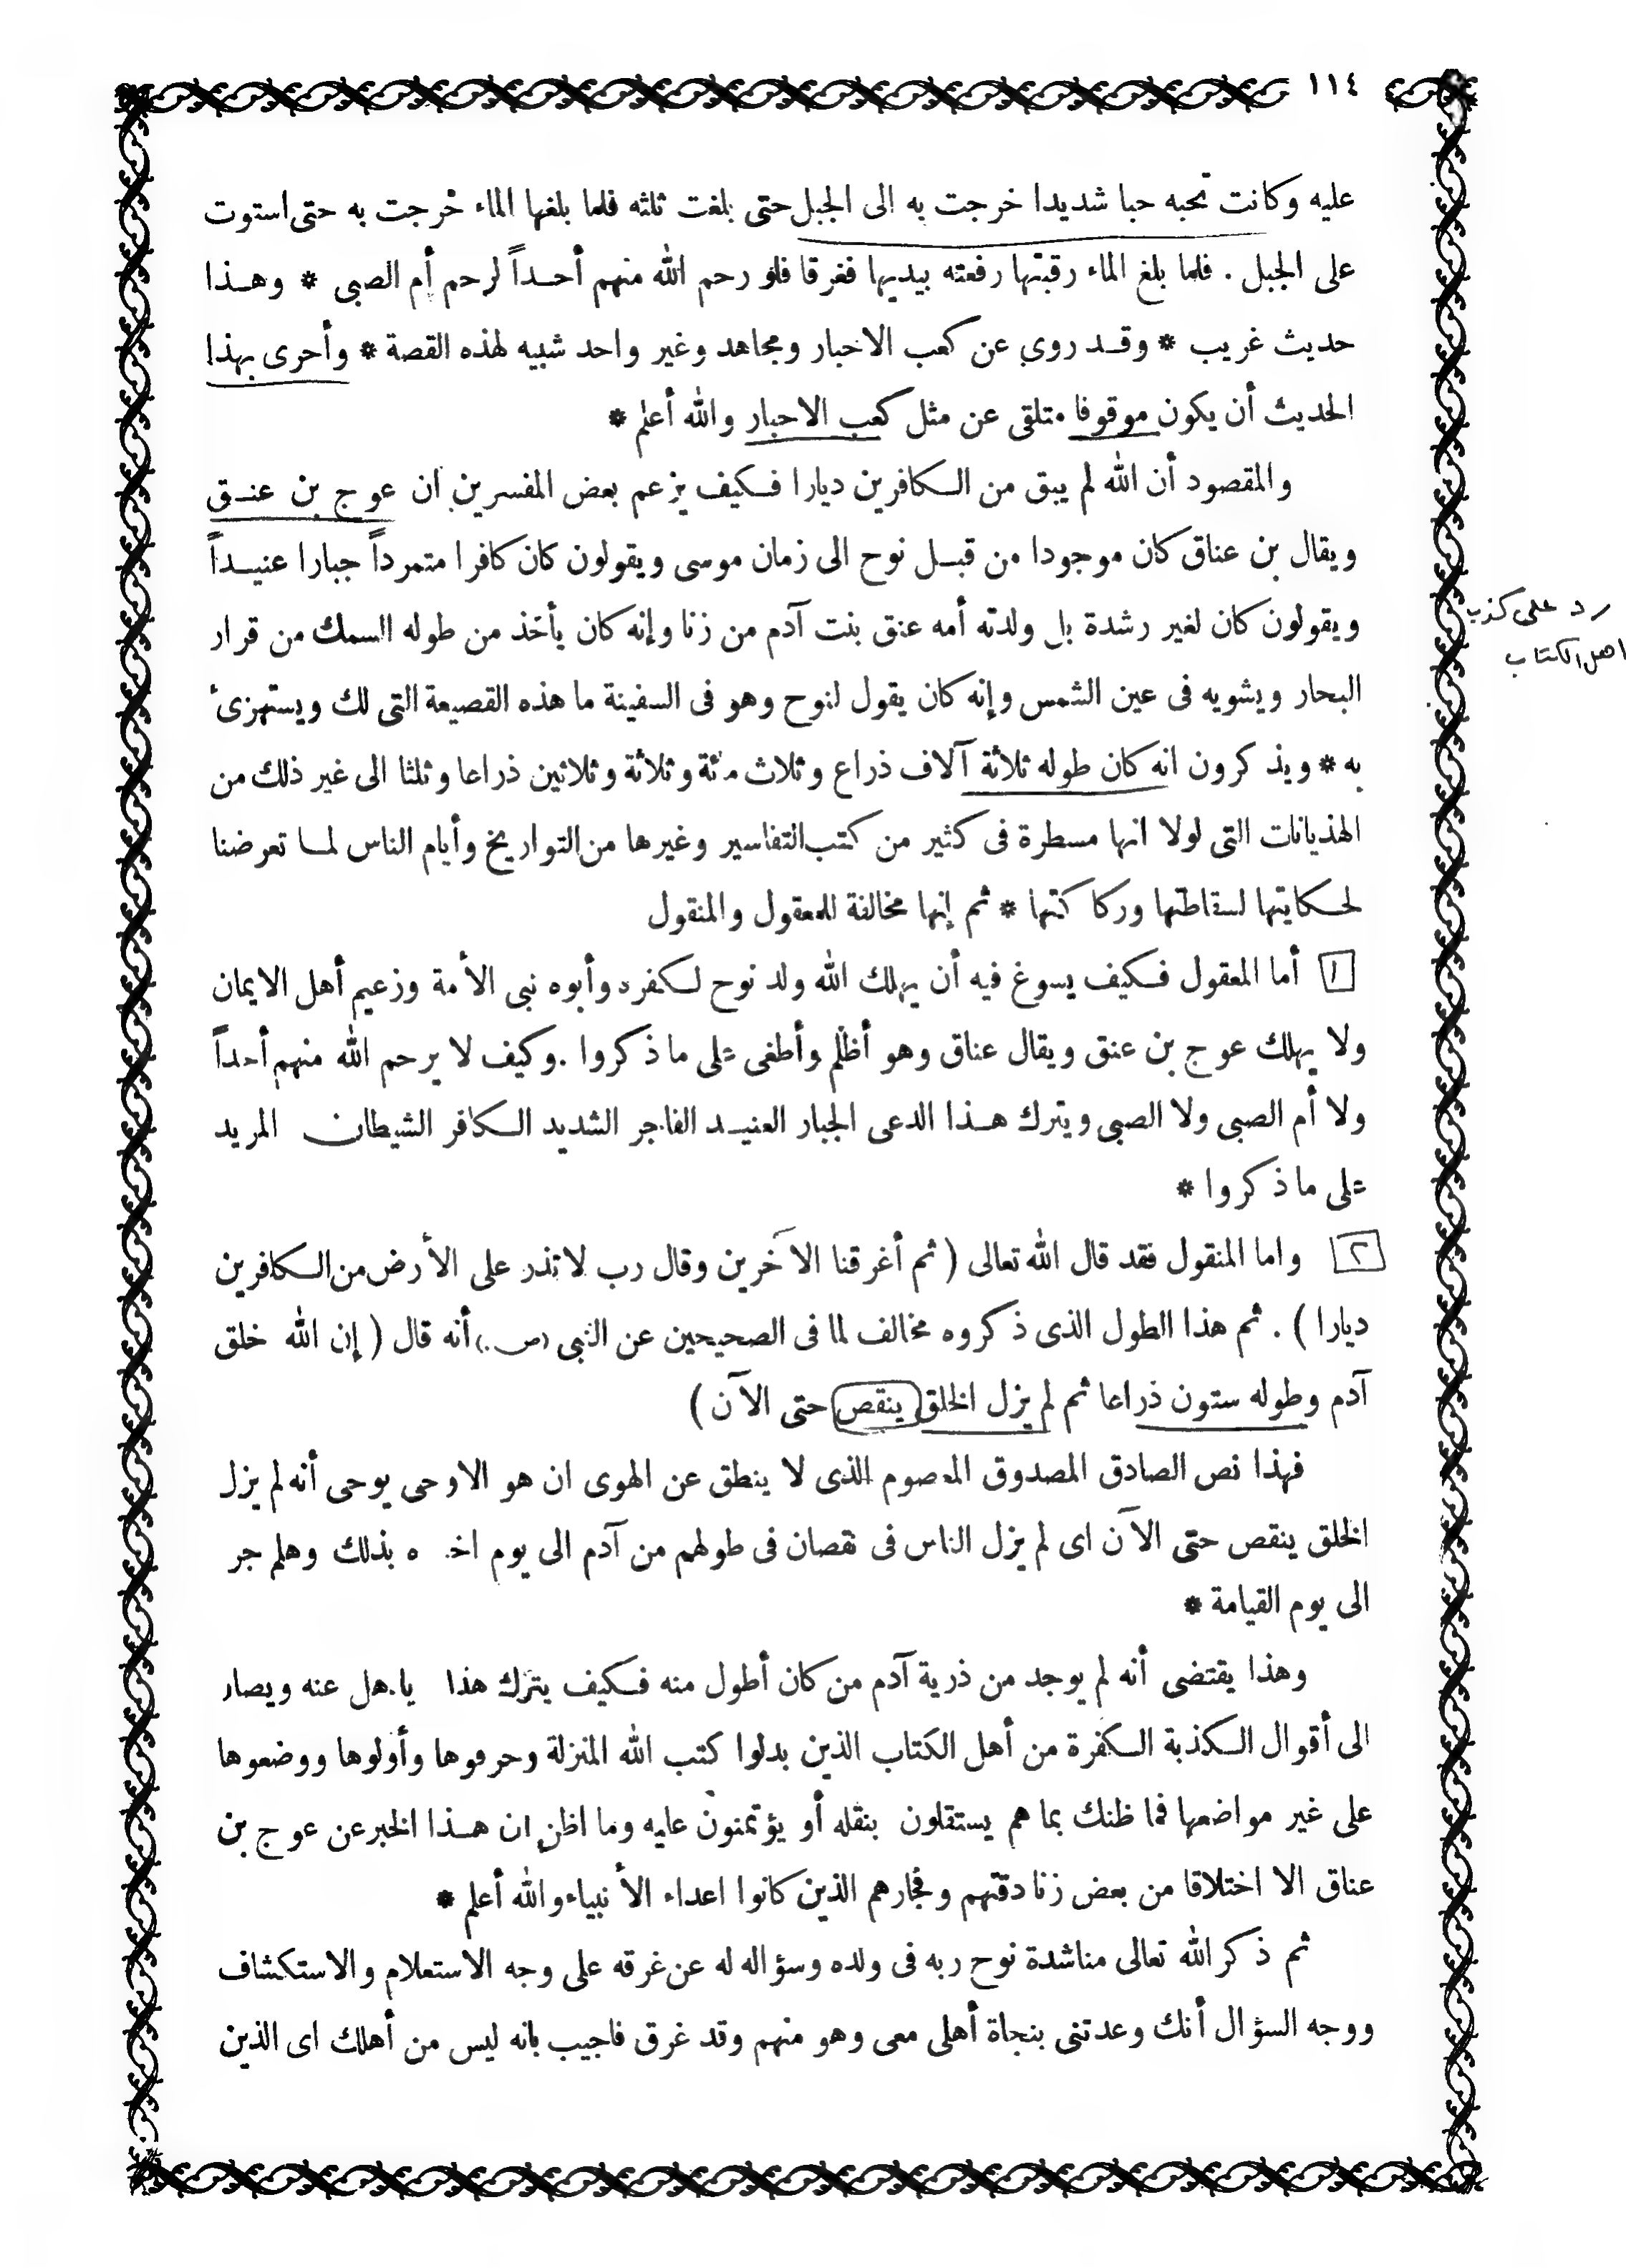 ١١٤
عليه وكانت تحبه حبا شديدا خرجت به الى الجبل حتى بلغت ثلثه فلما بلغها الماء خرجت به حتى استوت
على الجبل . فلما بلغ الماء رقبتها رفعته بيديها فغرقا فلو رحم الله منهم أحداً لرحم أم الصبى * وهذا
حديث غريب * وقد روي عن كعب الاحبار ومجاهد وغير واحد شبيه لهذه القصة * وأحرى بهذا
الحديث أن يكون موقوفا متلقى عن مثل كعب الاحبار والله أعلم *
والمقصود أن الله لم يبق من الكافرين ديارا فكيف يزعم بعض المفسرين ان عوج بن عنق
ويقال بن عناق كان موجودا من قبل نوح الى زمان موسى ويقولون كان كافرا متمرداً جبارا عنيداً
ويقولون كان لغير رشدة بل ولدته أمه عنق بنت آدم من زنا وإنه كان يأخذ من طوله السمك من قرار
البحار ويشويه فى عين الشمس وإنه كان يقول لنوح وهو فى السفينة ما هذه القصيعة التى لك ويستهزئ
به * ويذكرون انه كان طوله ثلاثة آلاف ذراع وثلاث مئة وثلاثة وثلاثين ذراعا وثلثا الى غير ذلك من
الهذيانات التى لولا انها مسطرة فى كثير من كتب التفاسير وغيرها من التواريخ وأيام الناس لما تعرضنا
لحكايتها لسقاطتها وركاكتها * ثم إنها مخالفة للمعقول والمنقول
١ أما المعقول فكيف يسوغ فيه أن يهلك الله ولد نوح لكفره وأبوه نبى الأمة وزعيم أهل الايمان
ولا يهلك عوج بن عنق ويقال عناق وهو أظلم وأطغى على ما ذكروا . وكيف لا يرحم الله منهم أحداً
ولا أم الصبى ولا الصبى ويترك هذا الدعى الجبار العنيد الفاجر الشديد الكافر الشيطان المريد
على ما ذكروا *
٢ واما المنقول فقد قال الله تعالى ( ثم أغرقنا الآخرين وقال رب لا تذر على الأرض من الكافرين
ديارا ) . ثم هذا الطول الذى ذكروه مخالف لما فى الصحيحين عن النبى (ص.) أنه قال ( إن الله خلق
آدم وطوله ستون ذراعا ثم لم يزل الخلق ينقص حتى الآن )
فهذا نص الصادق المصدوق المعصوم الذى لا ينطق عن الهوى ان هو الا وحى يوحى أنه لم يزل
الخلق ينقص حتى الآن اى لم يزل الناس فى نقصان فى طولهم من آدم الى يوم اخـ ه بذلك وهلم جر
الى يوم القيامة *
وهذا يقتضى أنه لم يوجد من ذرية آدم من كان أطول منه فكيف يترك هذا يذهل عنه ويصار
الى أقوال الكذبة الكفرة من أهل الكتاب الذين بدلوا كتب الله المنزلة وحرفوها وأولوها ووضعوها
على غير مواضعها فما ظنك بما هم يستقلون بنقله أو يؤتمنون عليه وما اظن ان هذا الخبر عن عوج بن
عناق الا اختلاقا من بعض زنادقتهم وفجارهم الذين كانوا اعداء الأنبياء والله أعلم *
ثم ذكر الله تعالى مناشدة نوح ربه فى ولده وسؤاله له عن غرقه على وجه الاستعلام والاستكشاف
ووجه السؤال أنك وعدتنى بنجاة أهلى معى وهو منهم وقد غرق فاجيب بانه ليس من أهلك اى الذين
رد على كذب
اهل الكتاب